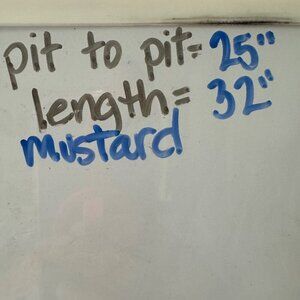 pit to pit= 25"
length= 32"
mustard